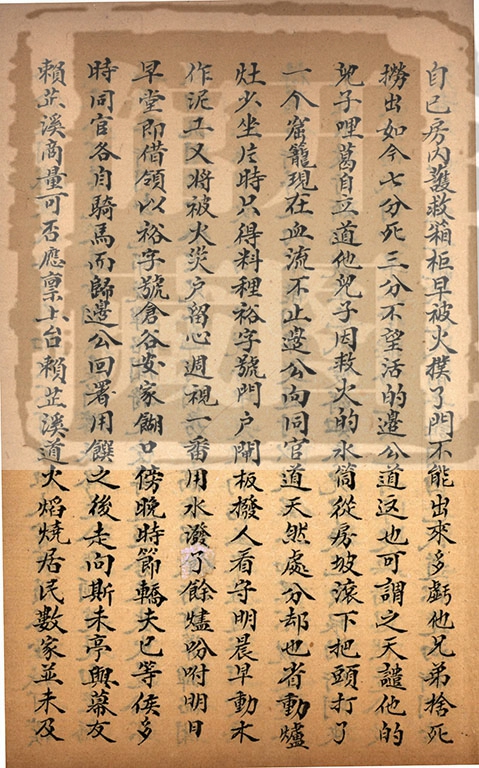 自己房內護救箱柜早被火撲了門不能出來多虧他兄弟捨死
撈出如今七分死三分不望活的邊公道这也可謂之天譴他的
兒子哩葛自立道他兒子因救火的水筒從房坡滾下把頭打了
一个窟籠現在血流不止邊公向同官道天然處分却也省動爐
灶少坐片時只得料理裕字號門户閘板撥人看守明晨早動木
作泥工又將被火災户留心週視一番用水潑了餘燼吩咐明日
早堂即借領以裕字號倉谷安家餬口傍晚時節轎夫已等候多
時同官各自騎馬而歸邊公回署用饌之後走向斯未亭與幕友
賴芷溪商量可否應禀上台賴芷溪道火焰燒居民數家並未及